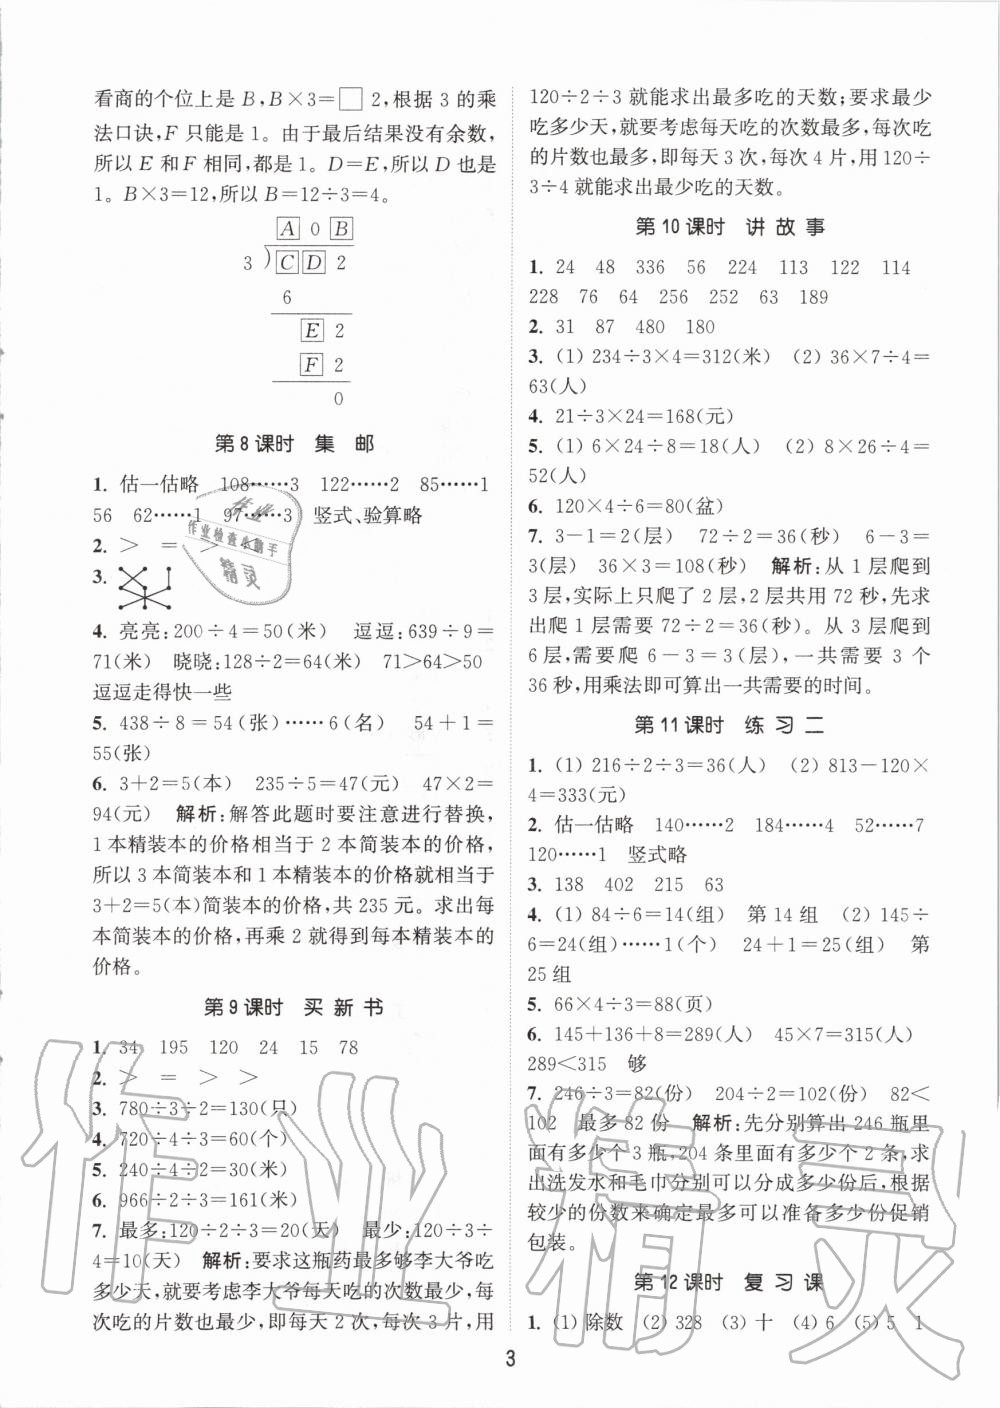 看商的个位上是 B,B×3=□ 2,根据 3 的乘
法口诀,F 只能是 1。由于最后结果没有余数,
所以 E 和 F 相同,都是 1。D=E,所以 D 也是
1。B×3=12,所以 B=12÷3=4。
A 0 B
3 ) C D 2
6
E 2
F 2
0
第 8 课时 集 邮
1. 估一估略 108……3 122……2 85……1
56 62……1 97……3 竖式、验算略
2. > = >
3.
4. 亮亮:200÷4=50(米) 逗逗:639÷9=
71(米) 晓晓:128÷2=64(米) 71>64>50
逗逗走得快一些
5. 438÷8=54(张)……6(名) 54+1=
55(张)
6. 3+2=5(本) 235÷5=47(元) 47×2=
94(元) 解析:解答此题时要注意进行替换,
1 本精装本的价格相当于 2 本简装本的价格,
所以 3 本简装本和 1 本精装本的价格就相当于
3+2=5(本)简装本的价格,共 235 元。求出每
本简装本的价格,再乘 2 就得到每本精装本的
价格。
第 9 课时 买 新 书
1. 34 195 120 24 15 78
2. > = > >
3. 780÷3÷2=130(只)
4. 720÷4÷3=60(个)
5. 240÷4÷2=30(米)
6. 966÷2÷3=161(米)
7. 最多:120÷2÷3=20(天) 最少:120÷3÷
4=10(天) 解析:要求这瓶药最多够李大爷吃
多少天,就要考虑李大爷每天吃的次数最少,每
次吃的片数也最少,即每天 2 次,每次 3 片,用
120÷2÷3 就能求出最多吃的天数;要求最少
吃多少天,就要考虑每天吃的次数最多,每次吃
的片数也最多,即每天 3 次,每次 4 片,用 120÷
3÷4 就能求出最少吃的天数。
第 10 课时 讲 故 事
1. 24 48 336 56 224 113 122 114
228 76 64 256 252 63 189
2. 31 87 480 180
3. (1) 234÷3×4=312(米) (2) 36×7÷4=
63(人)
4. 21÷3×24=168(元)
5. (1) 6×24÷8=18(人) (2) 8×26÷4=
52(人)
6. 120×4÷6=80(盆)
7. 3-1=2(层) 72÷2=36(秒) 6-3=
3(层) 36×3=108(秒) 解析:从 1 层爬到
3 层,实际上只爬了 2 层,2 层共用 72 秒,先求
出爬 1 层需要 72÷2=36(秒)。从 3 层爬到
6 层,需要爬 6-3=3(层),一共需要 3 个
36 秒,用乘法即可算出一共需要的时间。
第 11 课时 练 习 二
1. (1) 216÷2÷3=36(人) (2) 813-120×
4=333(元)
2. 估一估略 140……2 184……4 52……7
120……1 竖式略
3. 138 402 215 63
4. (1) 84÷6=14(组) 第 14 组 (2) 145÷
6=24(组)……1(个) 24+1=25(组) 第
25 组
5. 66×4÷3=88(页)
6. 145+136+8=289(人) 45×7=315(人)
289<315 够
7. 246÷3=82(份) 204÷2=102(份) 82<
102 最多 82 份 解析:先分别算出 246 瓶里
面有多少个 3 瓶,204 条里面有多少个 2 条,求
出洗发水和毛巾分别可以分成多少份后,根据
较少的份数来确定最多可以准备多少份促销
包装。
第 12 课时 复 习 课
1. (1) 除数 (2) 328 (3) 十 (4) 6 (5) 5 1
3
作业
作业检查小助手
精灵
作业精灵